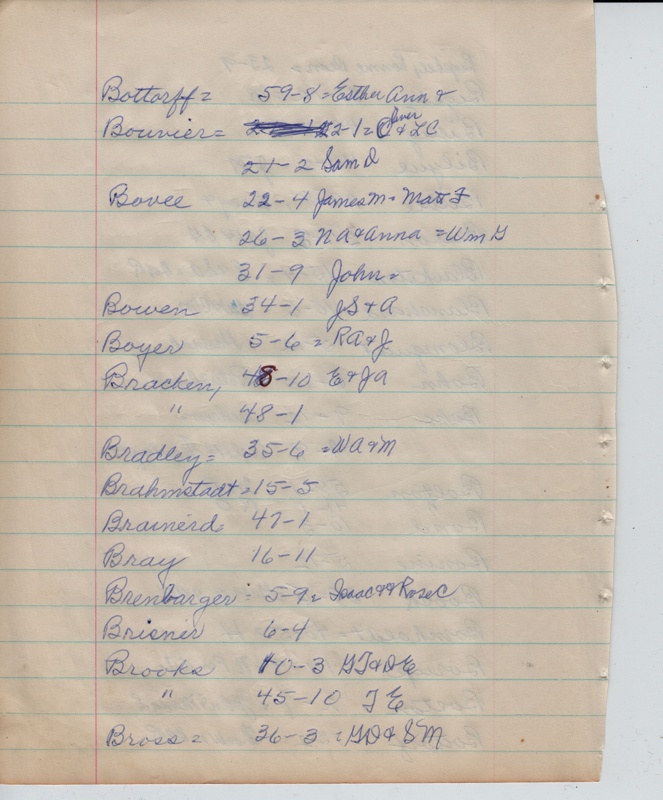 Bottorff = 59-8 = Esther Ann &
Bouvier = 22-1 = & LC
21-2 Sam D
Bovee 22-4 James M - Matt F
26-3 NA & Anna = Wm G
31-9 John =
Bowen 34-1 JS & A
Boyer 5-6 = RA & J
Bracken, 48-10 E & JA
" 48-1
Bradley = 35-6 = WA & M
Brahmstadt = 15-5
Brainerd 47-1
Bray 16-11
Brenbarger = 5-9 = Isaac & Rose C
Brisner 6-4
Brooks 10-3 GT & DE
" 45-10 TE
Bross = 36-3 = GD & SM